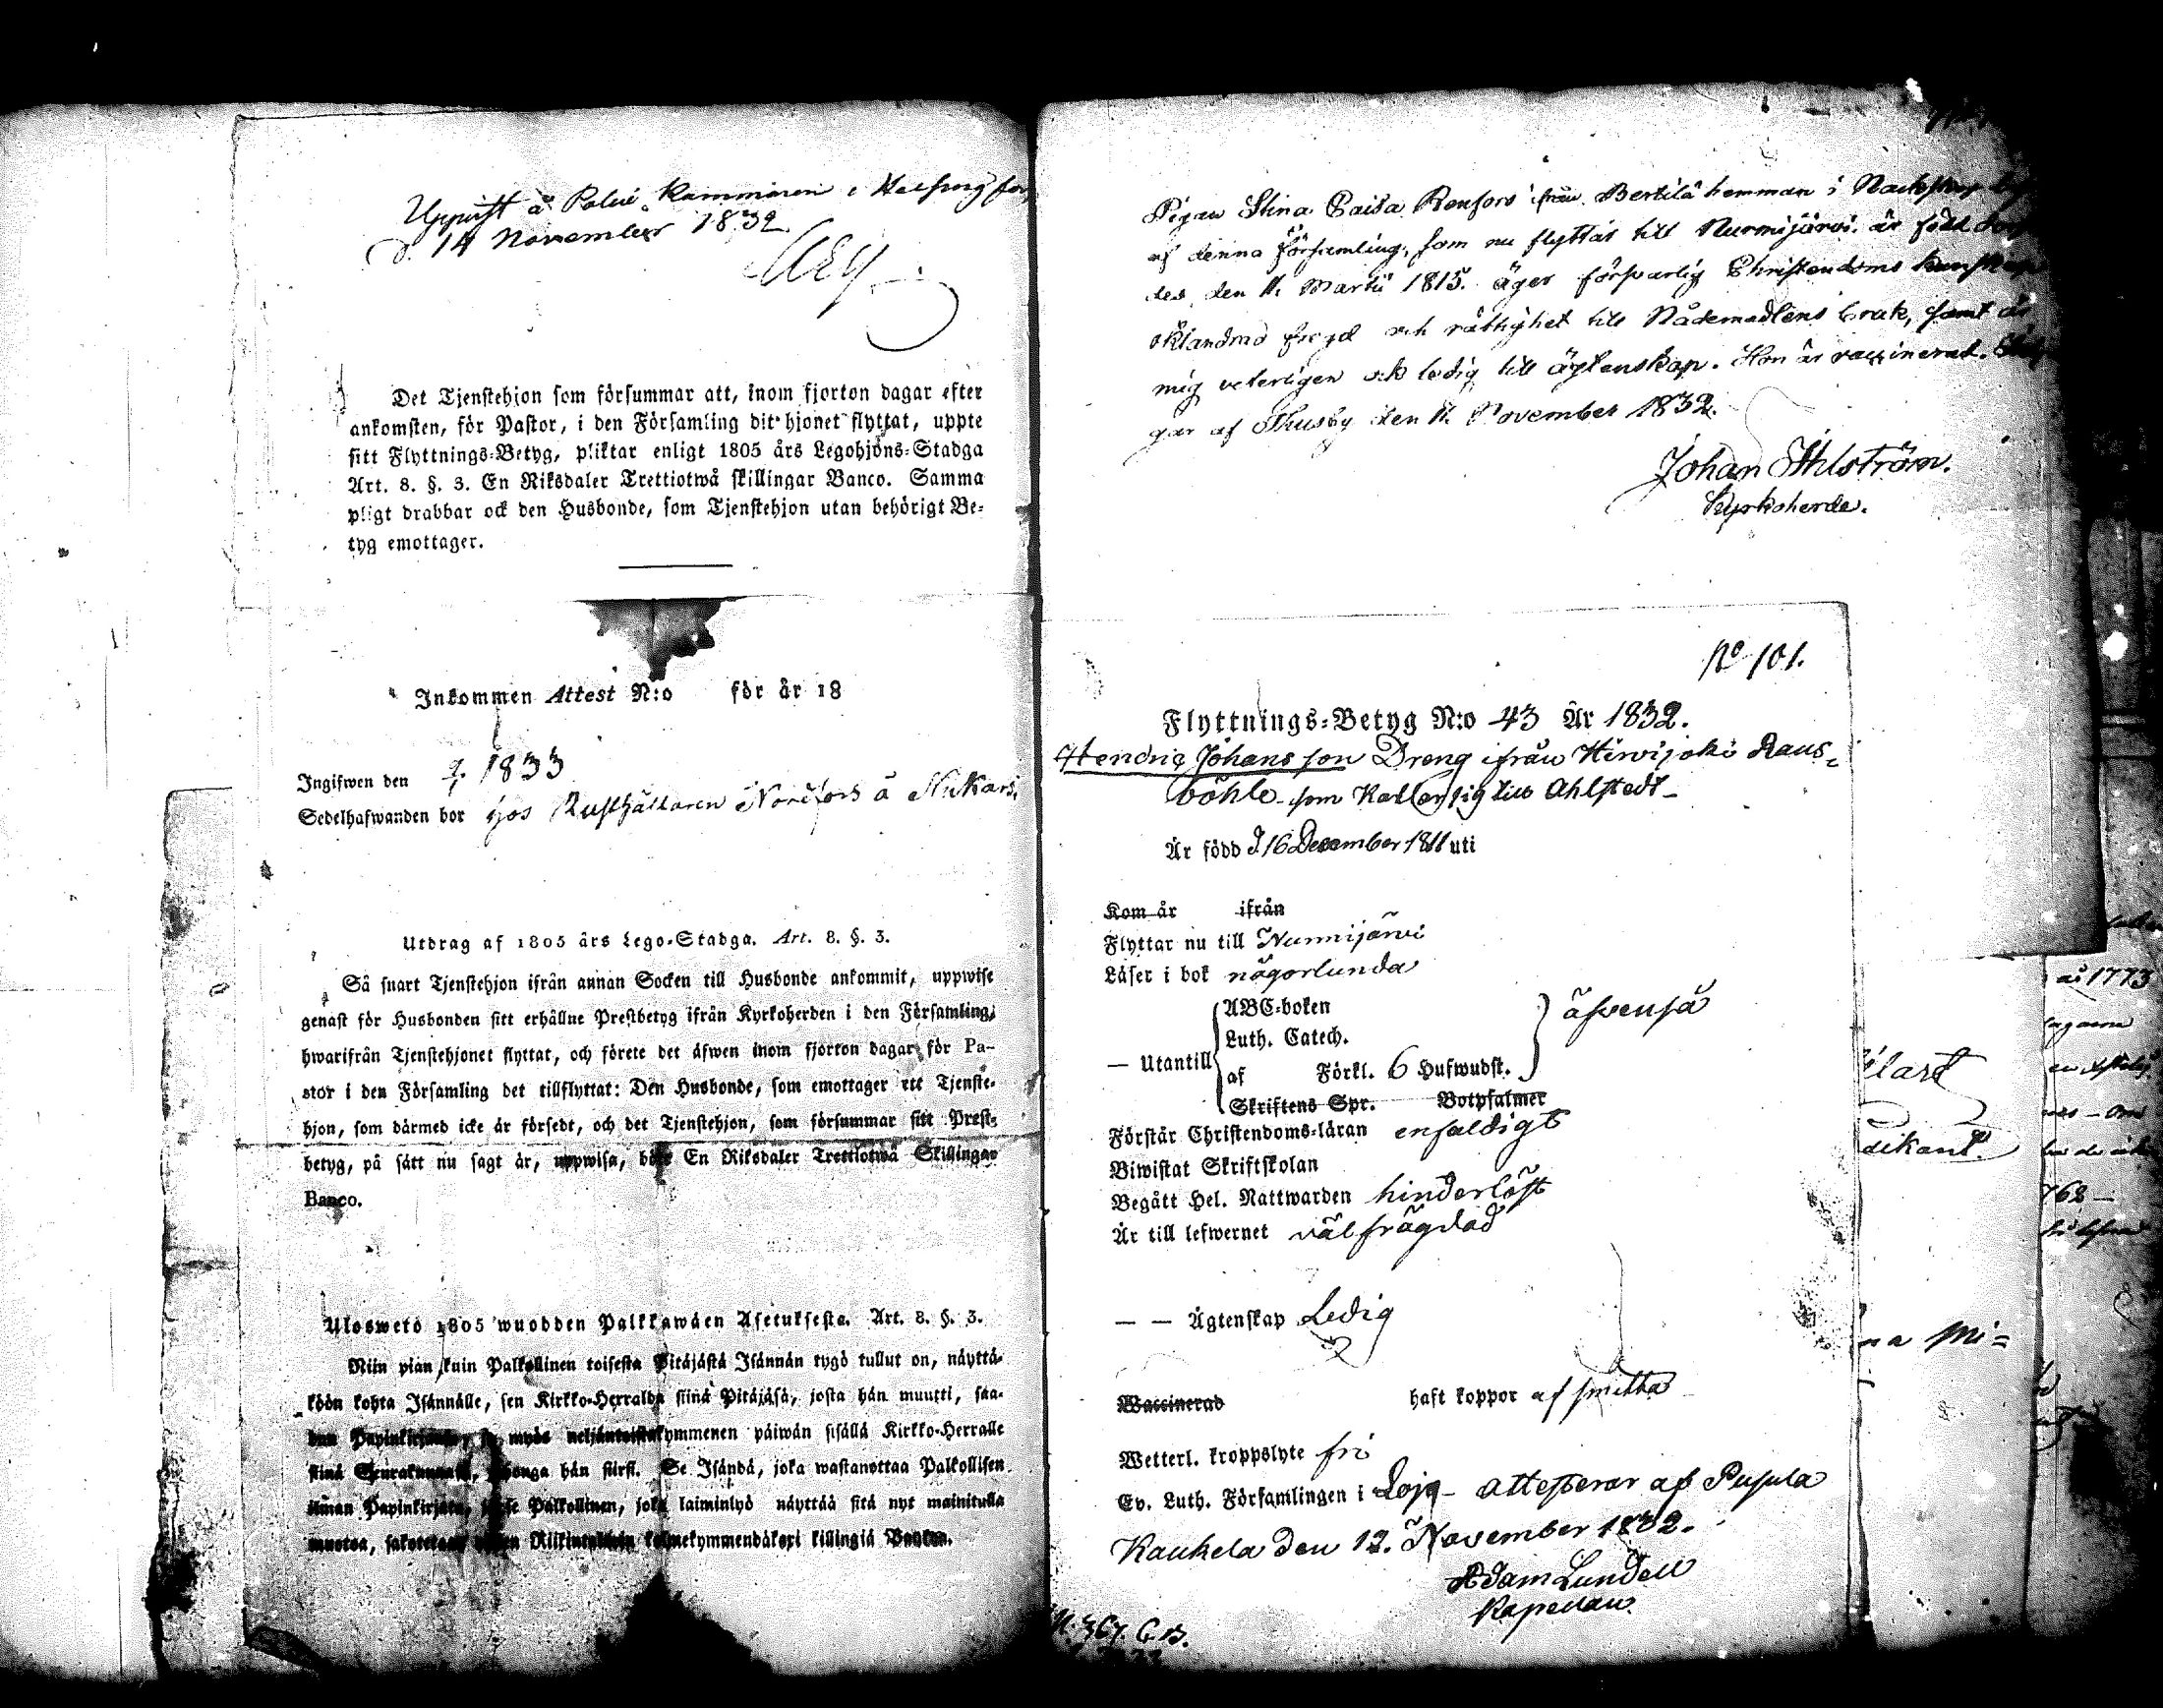 Uppvist å Polis Kammaren i Helsingfors
d. 14 November 1832
Det Tjenstehjon som försummar att, inom fjorton dagar efter
ankomsten, för Pastor, i den Församling dit hjonet flyttat, uppte
sitt Flyttnings-Betyg, pliktar enligt 1805 års Legohjons-Stadga
Art. 8. §. 3. En Riksdaler Trettiotwå skillingar Banco. Samma
pligt drabbar ock den Husbonde, som Tjenstehjon utan behörigt Be-
tyg emottager.
Inkommen Attest N:o för år 18
Ingifwen den 1833
Sedelhafwanden bor hos Rusthållaren Nordfors å Nukari
Utdrag af 1805 års Lego-Stadga. Art. 8. §. 3.
Så snart Tjenstehjon ifrån annan Socken till Husbonde ankommit, uppwise
genast för Husbonden sitt erhållne Prestbetyg ifrån Kyrkoherden i den Församling,
hwarifrån Tjenstehjonet flyttat, och förete det äfwen inom fjorton dagar för Pa-
stor i den Församling det tillflyttat: Den Husbonde, som emottager ett Tjenste-
hjon, som därmed icke är försedt, och det Tjenstehjon, som försummar sitt Prest-
betyg, på sätt nu sagt är, uppwisa, böte En Riksdaler Trettiotwå Skillingar
Banco.
Uloswetö 1805 wuodden Palkkawäen Asetuksesta. Art. 8. §. 3.
Niin pian kuin Palkollinen toisesta Pitäjästä Isännän tygö tullut on, näyttä-
köön kohta Isännälle, sen Kirkko-Herralda siinä Pitäjäsä, josta hän muutti, saa-
dun Papinkirjansa, ja myös neljäntoistakymmenen päiwän sisällä Kirkko-Herralle
siinä Seurakunnasa, johonga hän siirsi. Se Isändä, joka wastanottaa Palkollisen
ilman Papinkirjata, ja se Palkollinen, joka laiminlyö näyttää sitä nyt mainitulla
muotoa, sakotetaan yhden Riikintalarin kolmekymmendäkaxi killingiä Bankoa.
Pigan Stina Caisa Renfors ifrån Bertilä hemman i
af denna församling, som nu flyttar till Nurmijärvi. är född
des den 11. Martii 1815. äger försvarlig Christendoms kunskap
oklandrad frejd och rättighet till Nådemedlens bruk, samt är
mig veterligen ock ledig till ägtenskap. Hon är vaccinerad.
gar af Thusby den 11. November 1832.
Johan Ahlström.
Kyrkoherde.
No 101.
Flyttnings-Betyg N:o 43 År 1832.
Hendric Johansson Dreng ifrån Hirvijoki Raus-
böhle som Kallar sig till Ahlstedt
År född d 16 December 1811 uti
Kom år ifrån
Flyttar nu till Nurmijärvi
Läser i bok någorlunda
Utantill
ABC-boken
Luth. Catech.
af Förkl. 6 Hufwudst.
Skriftens Spr. Botpsalmer
äfvenså
Förstår Christendoms-läran enfaldigt
Biwistat Skriftskolan
Begått Hel. Nattwarden hinderlöst
År till lefwernet välfrägdad
— — Ägtenskap Ledig
Waccinerad haft koppor af smitta
Wetterl. kroppslyte fri
Ev. Luth. Församlingen i Lojo attesterar af Pusula
Kaukela den 12. November 1832.
Adam Lundell
Kapellan
ai 1773
dikant.
762 —
na Mi=